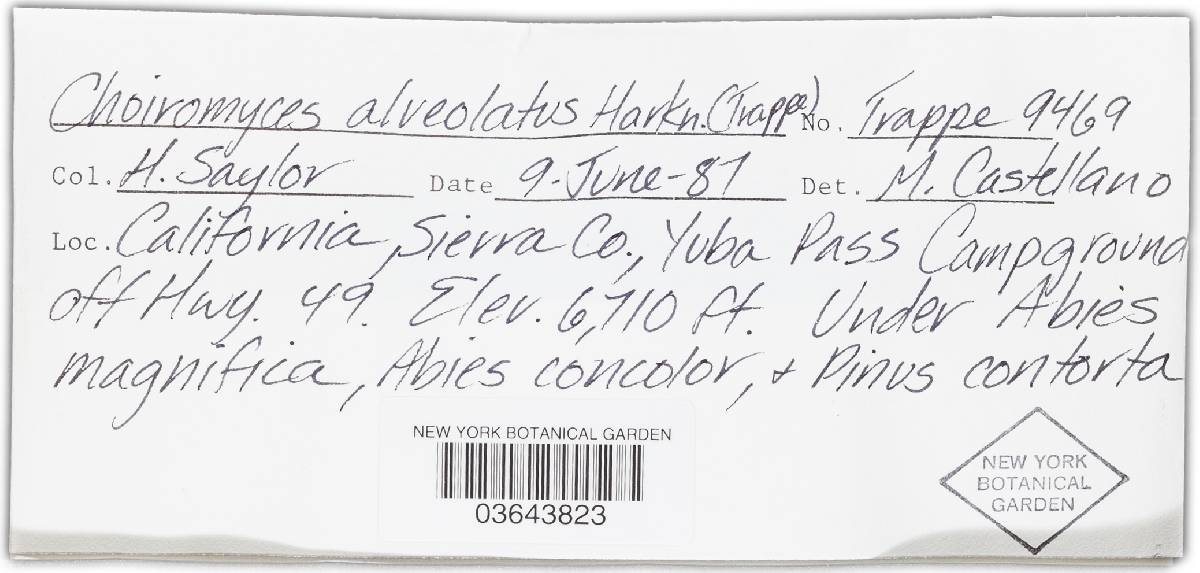 Choiromyces alveolatus Harkn. (Trappe) No. Trappe 9469
Col. H. Saylor Date 9-June-87 Det. M. Castellano
Loc. California, Sierra Co., Yuba Pass Campground
off Hwy. 49. Elev. 6,710 ft. Under Abies
magnifica, Abies concolor, + Pinus contorta
NEW YORK BOTANICAL GARDEN
03643823
NEW YORK
BOTANICAL
GARDEN